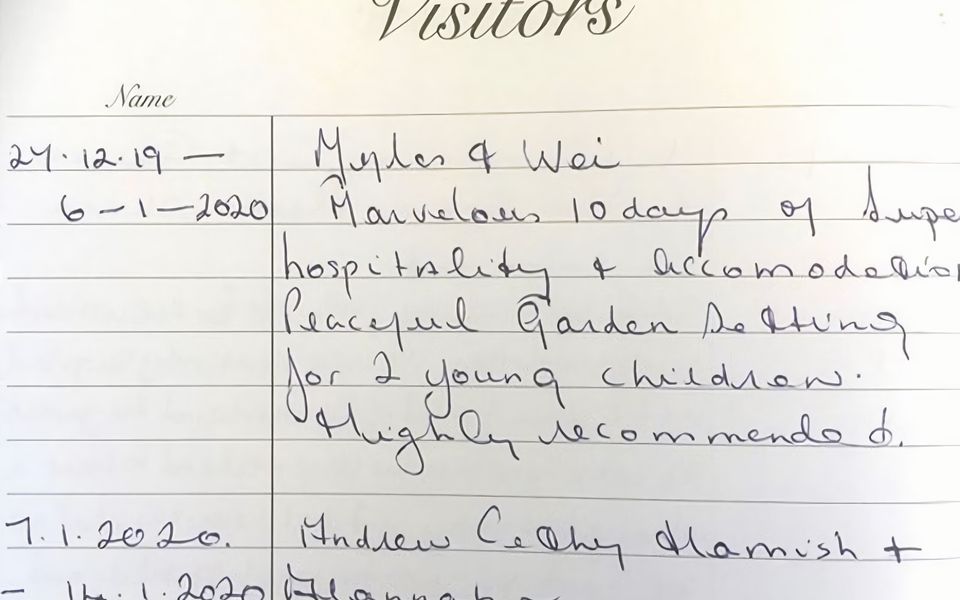 Visitors
Name
27.12.19 — Myles & Wei
6-1-2020 Marvelous 10 days of Supe
hospitality & Accomodation
Peaceful Garden Setting
for 2 young children.
Highly recommended.
7.1.2020. Andrew Cathy Hamish +
- 14.1.2020 Hannah